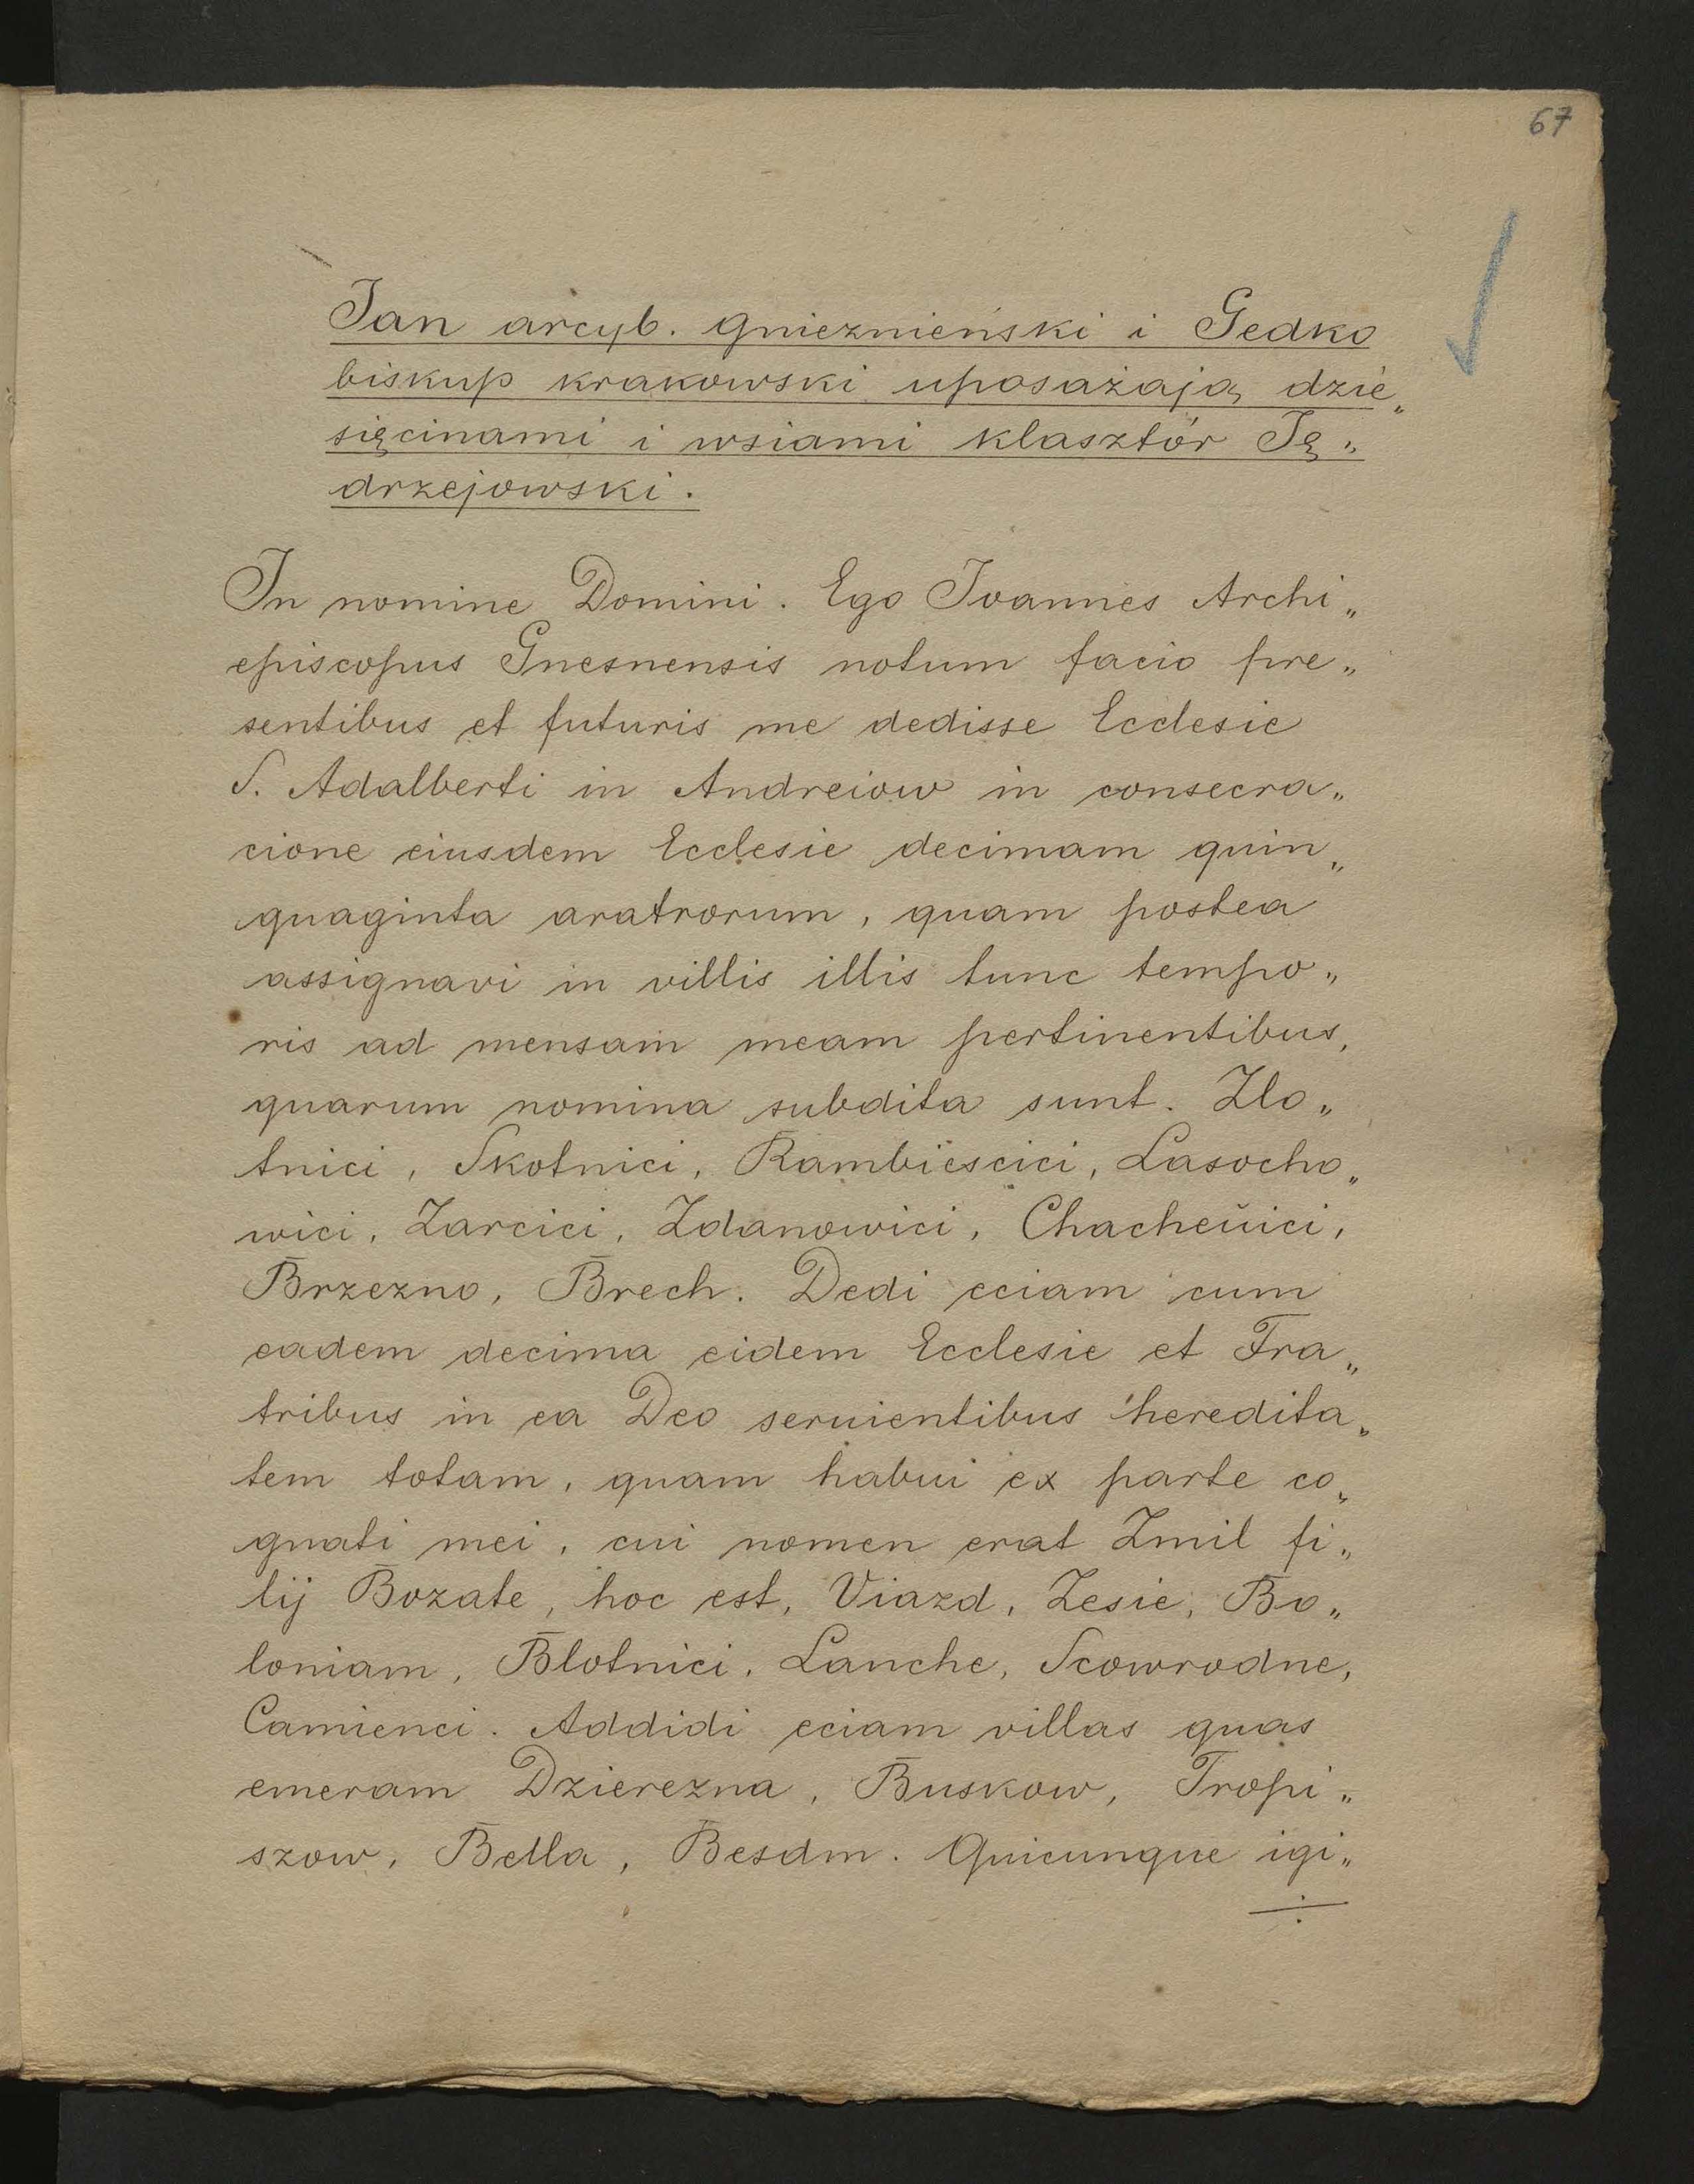 67
Jan arcyb. gnieznieński i Gedko
biskup krakowski uposażają dzie„
sięcinami i wsiami klasztór Ję„
drzejowski.
In nomine Domini. Ego Joannes Archi„
episcopus Gnesnensis notum facio pre„
sentibus et futuris me dedisse Ecclesie
S. Adalberti in Andreiow in consecra„
cione eiusdem Ecclesie decimam quin„
quaginta aratrorum, quam postea
assignavi in villis illis tunc tempo„
ris ad mensam meam pertinentibus,
quarum nomina subdita sunt. Zlo„
tnici, Skotnici, Rambiescici, Lasocho„
wici, Zarcici, Zdanowici, Chacheŭici,
Brzezno, Brech. Dedi eciam cum
eadem decima eidem Ecclesie et Fra„
tribus in ea Deo seruientibus heredita„
tem totam, quam habui ex parte co„
gnati mei, cui nomen erat Zmil fi„
lij Bozate, hoc est, Viazd, Lesie, Bo„
loniam, Blotnici, Lanche, Scowrodne,
Camienci. Addidi eciam villas quas
emeram Dzierezna, Buskow, Tropi„
szow, Bella, Besdm. Quicunque igi„